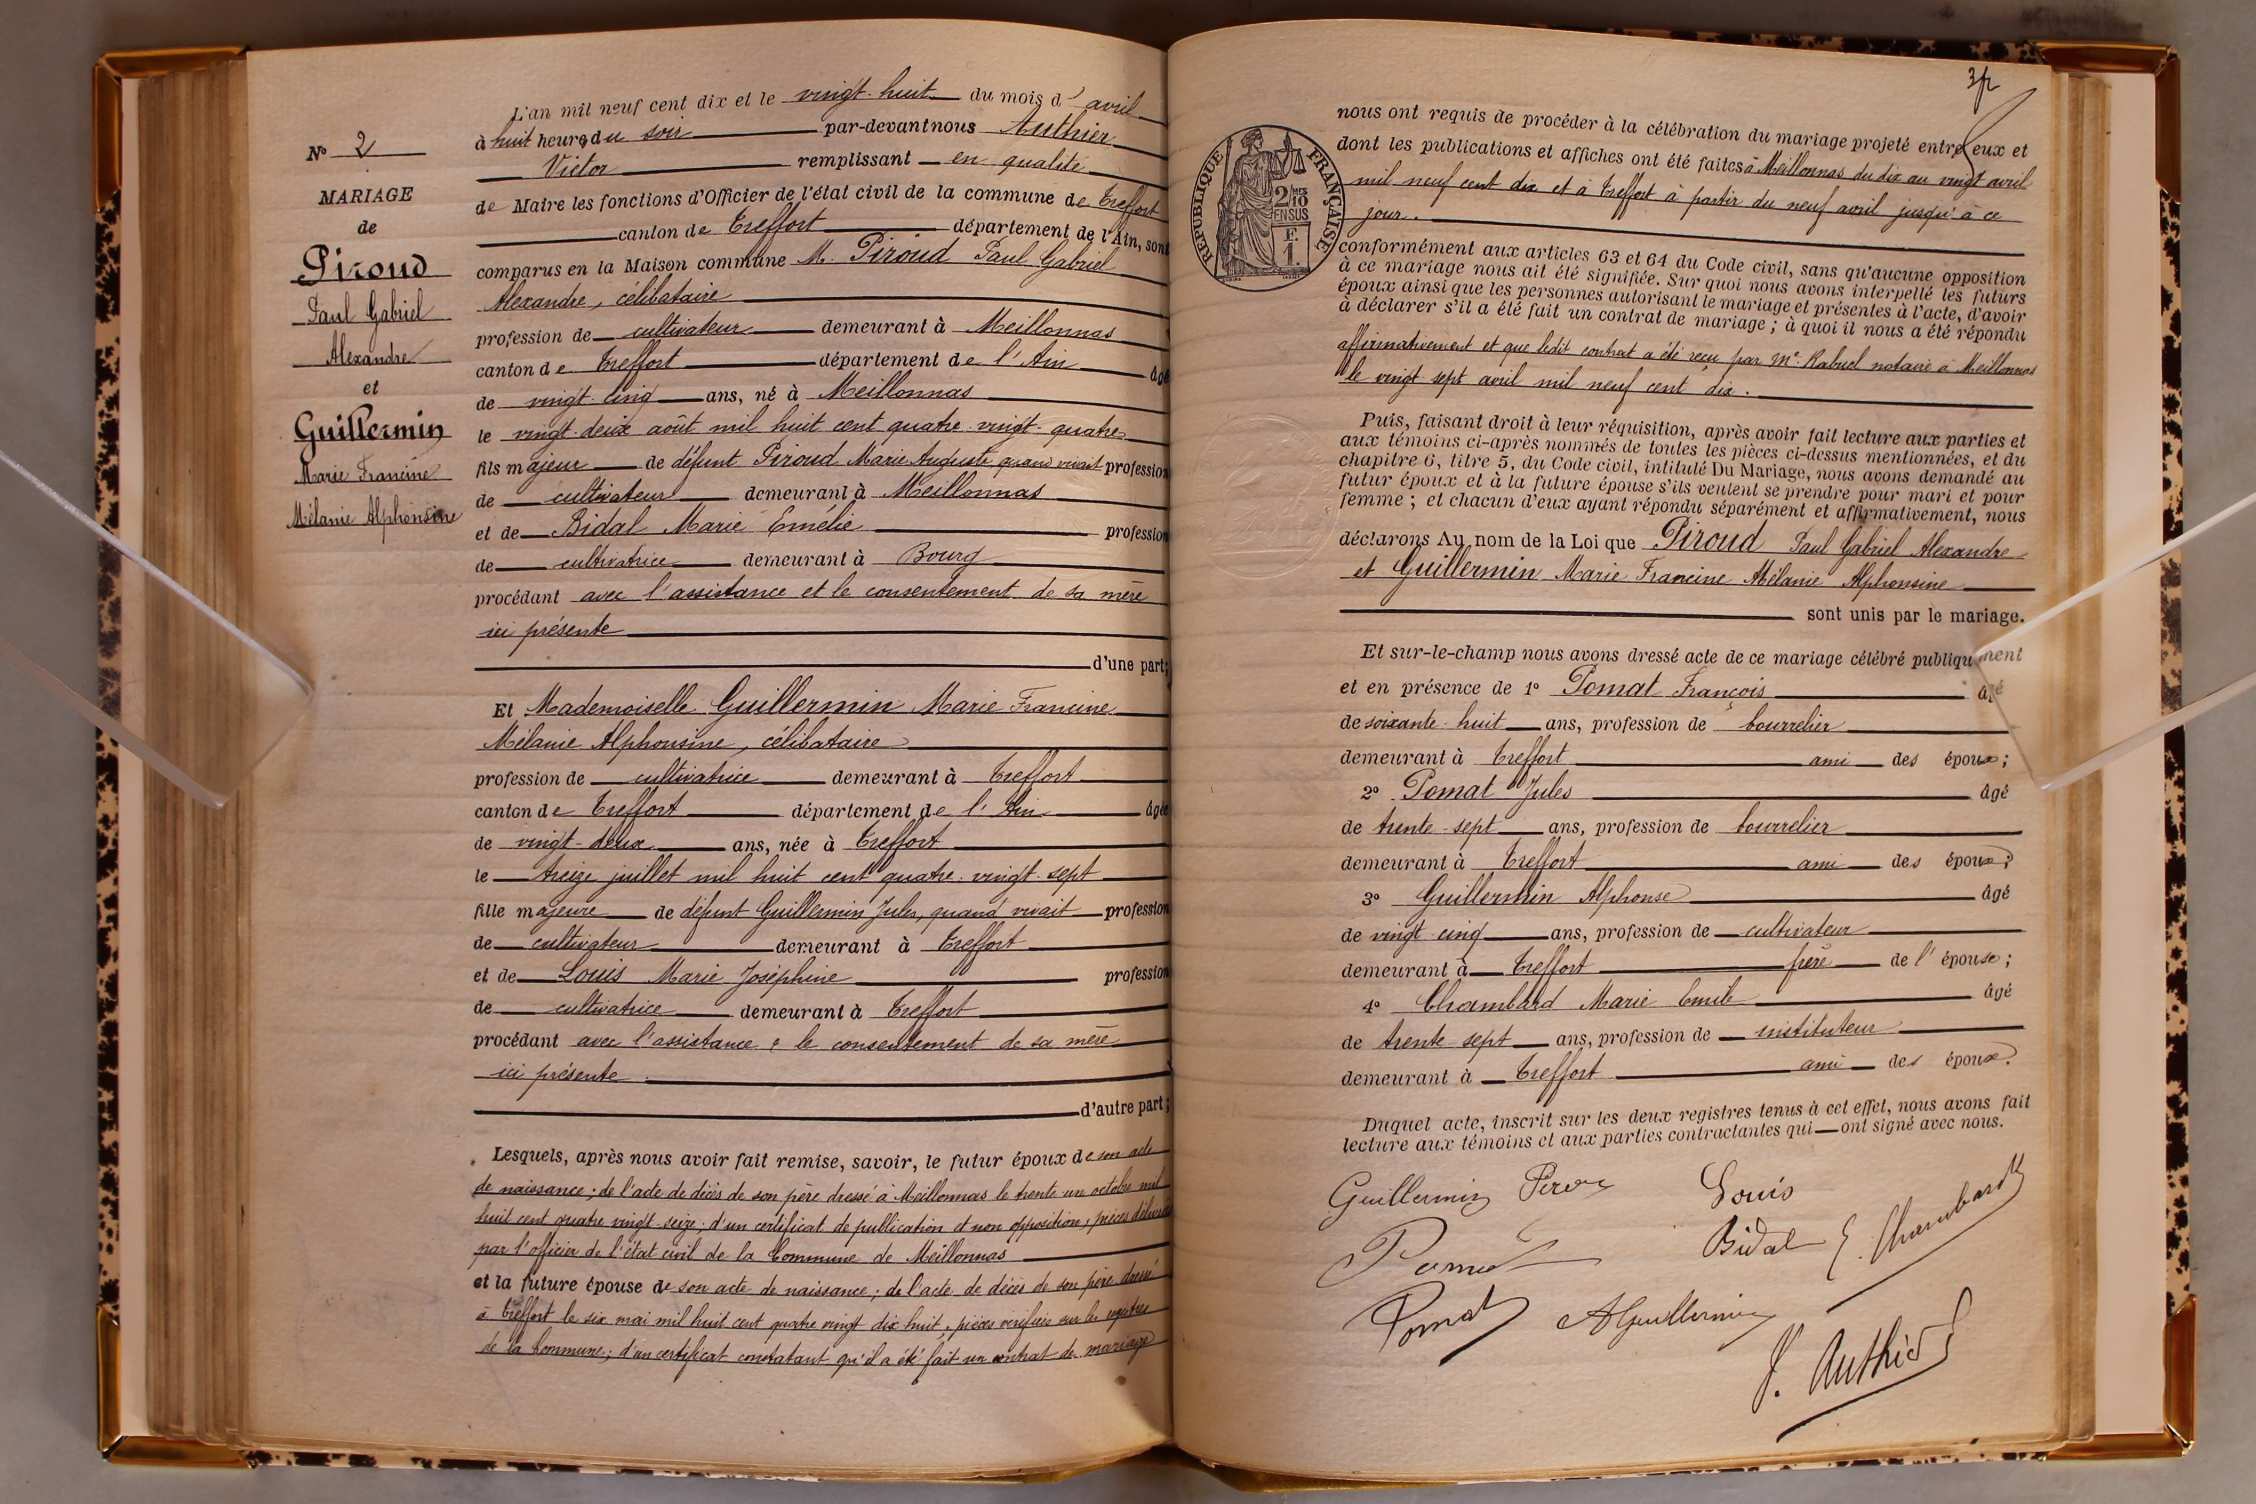 N° 2
MARIAGE
de
Piroud
Paul Gabriel
Alexandre
et
Guillermin
Marie Francine
Mélanie Alphonsine
L'an mil neuf cent dix et le vingt-huit du mois d' avril
à huit heures du soir par-devant nous Authier
Victor remplissant en qualité
de Maire les fonctions d'Officier de l'état civil de la commune de Treffort
canton de Treffort département de l'Ain, sont
comparus en la Maison commune M. Piroud Paul Gabriel
Alexandre, célibataire
profession de cultivateur demeurant à Meillonnas
canton de Treffort département de l'Ain âgé
de vingt-cinq ans, né à Meillonnas
le vingt-deux août mil huit cent quatre-vingt-quatre
fils majeur de défunt Piroud Marie Auguste quand vivait profession
de cultivateur demeurant à Meillonnas
et de Bidal Marie Emélie profession
de cultivatrice demeurant à Bourg
procédant avec l'assistance et le consentement de sa mère
ici présente
d'une part;
Et Mademoiselle Guillermin Marie Francine
Mélanie Alphonsine, célibataire
profession de cultivatrice demeurant à Treffort
canton de Treffort département de l'Ain âgée
de vingt-deux ans, née à Treffort
le treize juillet mil huit cent quatre-vingt-sept
fille majeure de défunt Guillermin Jules, quand vivait profession
de cultivateur demeurant à Treffort
et de Louis Marie Joséphine profession
de cultivatrice demeurant à Treffort
procédant avec l'assistance & le consentement de sa mère
ici présente
d'autre part;
Lesquels, après nous avoir fait remise, savoir, le futur époux de son acte
de naissance; de l'acte de décès de son père dressé à Meillonnas le trente un octobre mil
huit cent quatre vingt-seize; d'un certificat de publication et non opposition; pièces délivrées
par l'officier de l'état civil de la Commune de Meillonnas
et la future épouse de son acte de naissance; de l'acte de décès de son père dressé
à Treffort le six mai mil huit cent quatre vingt dix huit, pièces vérifiées sur les registres
de la Commune; d'un certificat constatant qu'il a été fait un contrat de mariage
RÉPUBLIQUE FRANÇAISE
2/10
EN SUS
F.
1.
nous ont requis de procéder à la célébration du mariage projeté entre eux et
dont les publications et affiches ont été faites à Meillonnas du dix au vingt avril
mil neuf cent dix et à Treffort à partir du neuf avril jusqu'à ce
jour.
conformément aux articles 63 et 64 du Code civil, sans qu'aucune opposition
à ce mariage nous ait été signifiée. Sur quoi nous avons interpellé les futurs
époux ainsi que les personnes autorisant le mariage et présentes à l'acte, d'avoir
à déclarer s'il a été fait un contrat de mariage; à quoi il nous a été répondu
affirmativement et que ledit contrat a été reçu par Me Rabuel notaire à Meillonnas
le vingt sept avril mil neuf cent dix.
Puis, faisant droit à leur réquisition, après avoir fait lecture aux parties et
aux témoins ci-après nommés de toutes les pièces ci-dessus mentionnées, et du
chapitre 6, titre 5, du Code civil, intitulé Du Mariage, nous avons demandé au
futur époux et à la future épouse s'ils veulent se prendre pour mari et pour
femme; et chacun d'eux ayant répondu séparément et affirmativement, nous
déclarons Au nom de la Loi que Piroud Paul Gabriel Alexandre
et Guillermin Marie Francine Mélanie Alphonsine
sont unis par le mariage.
Et sur-le-champ nous avons dressé acte de ce mariage célébré publiquement
et en présence de 1° Pomat François âgé
de soixante-huit ans, profession de bourrelier
demeurant à Treffort ami des époux;
2° Pomat Jules âgé
de trente-sept ans, profession de bourrelier
demeurant à Treffort ami des époux;
3° Guillermin Alphonse âgé
de vingt cinq ans, profession de cultivateur
demeurant à Treffort frère de l'épouse;
4° Chambard Marie Emile âgé
de trente-sept ans, profession de instituteur
demeurant à Treffort ami des époux.
Duquel acte, inscrit sur les deux registres tenus à cet effet, nous avons fait
lecture aux témoins et aux parties contractantes qui ont signé avec nous.
Guillermin Louis
Bidal E. Chambard
Pomat
Pomat A Guillermin
V. Authier